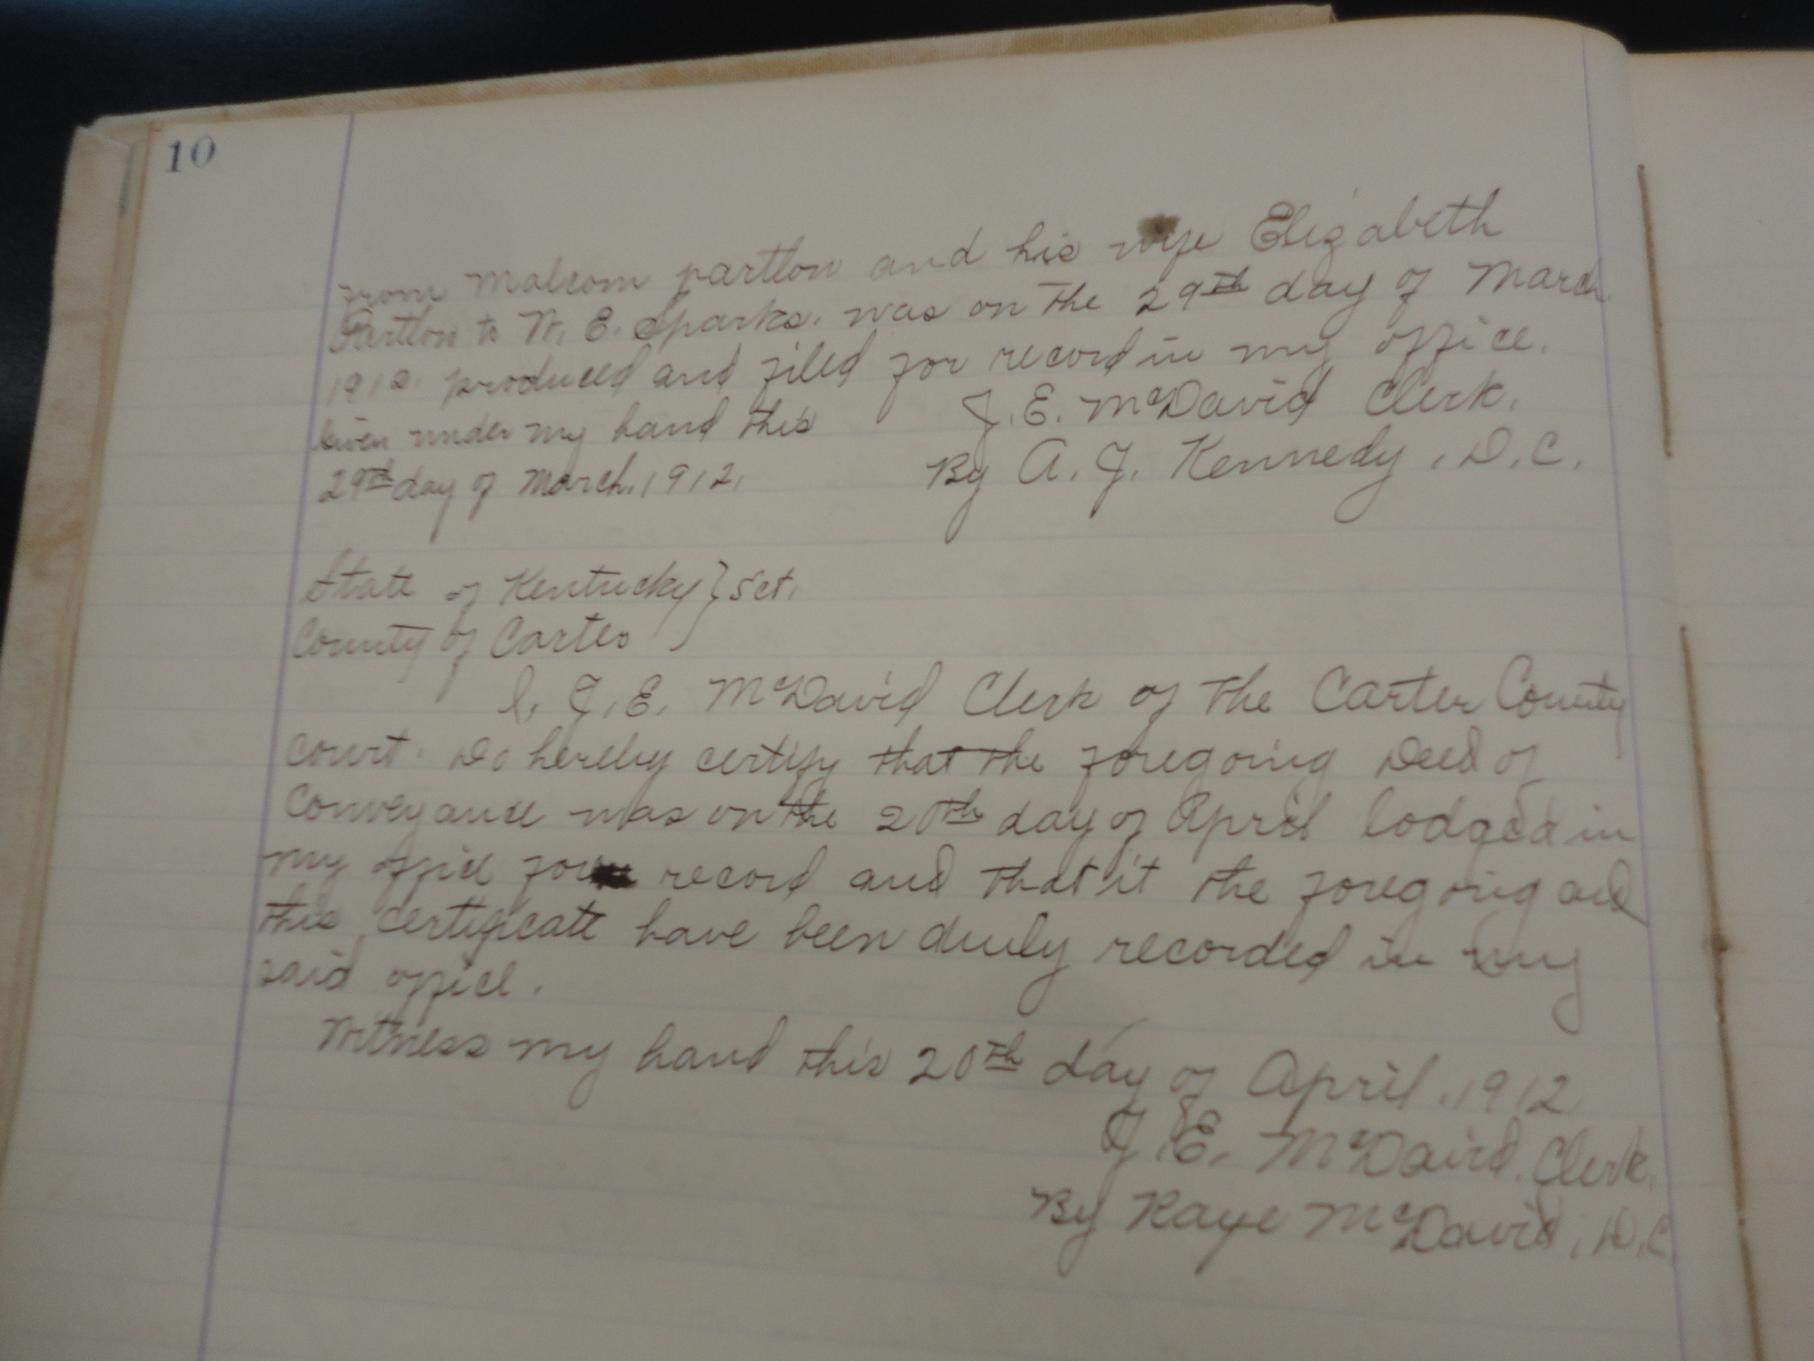 10
from Malcom partlow and his wife Elizabeth
Partlow to W. E. Sparks. was on the 29th day of March
1912. produced and filed for record in my office.
Given under my hand this J. E. McDavid Clerk.
29th day of March. 1912. By A. J. Kennedy, D.C.
State of Kentucky } Sct.
County of Carter
I, J. E. McDavid Clerk of the Carter County
Court. Do hereby certify that the foregoing Deed of
Conveyance was on the 20th day of April lodged in
my office for record and that it the foregoing and
this certificate have been duly recorded in my
said office.
Witness my hand this 20th day of April. 1912
J. E. McDavid. Clerk.
By Kaye McDavid, D.C.